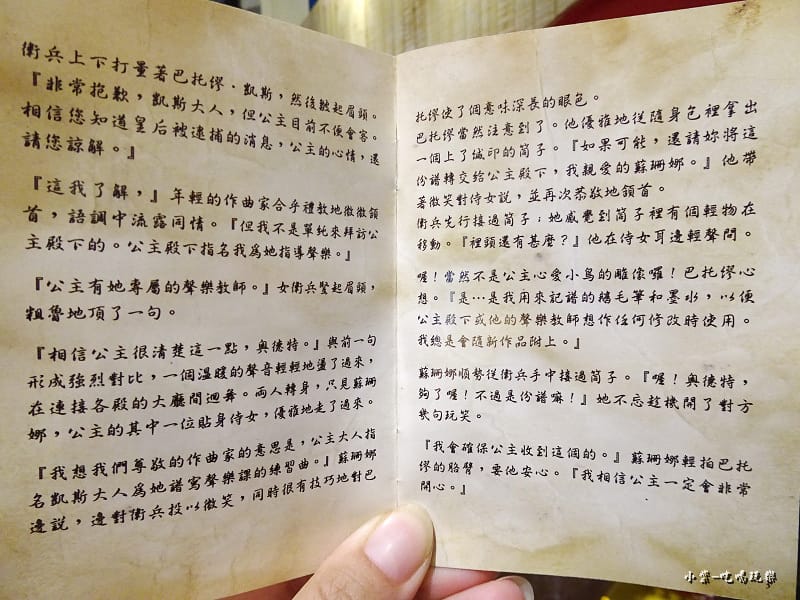 衛兵上下打量著巴托繆·凱斯，然後皺起眉頭。
『非常抱歉，凱斯大人，但公主目前不便會客。
相信您知道皇后被逮捕的消息，公主的心情，還
請您諒解。』
『這我了解，』年輕的作曲家合乎禮教地微微頷
首，語調中流露同情。『但我不是單純來拜訪公
主殿下的。公主殿下指名我為她指導聲樂。』
『公主有她專屬的聲樂教師。』女衛兵豎起眉頭，
粗魯地頂了一句。
『相信公主很清楚這一點，奧德特。』與前一句
形成強烈對比，一個溫暖的聲音輕輕地盪了過來，
在連接各殿的大廳間迴舞。兩人轉身，只見蘇珊
娜，公主的其中一位貼身侍女，優雅地走了過來。
『我想我們尊敬的作曲家的意思是，公主大人指
名凱斯大人為她譜寫聲樂課的練習曲。』蘇珊娜
邊說，邊對衛兵投以微笑，同時很有技巧地對巴
托繆使了個意味深長的眼色。
巴托繆當然注意到了。他優雅地從隨身包裡拿出
一個上了緘印的筒子。『如果可能，還請妳將這
份譜轉交給公主殿下，我親愛的蘇珊娜。』他帶
著微笑對侍女說，並再次恭敬地頷首。
衛兵先行接過筒子；她感覺到筒子裡有個輕物在
移動。『裡頭還有甚麼？』他在侍女耳邊輕聲問。
喔！當然不是公主心愛小鳥的雕像囉！巴托繆心
想。『是…是我用來記譜的鵝毛筆和墨水，以便
公主殿下或他的聲樂教師想作任何修改時使用。
我總是會隨新作品附上。』
蘇珊娜順勢從衛兵手中接過筒子。『喔！奧德特，
夠了喔！不過是份譜嘛！』她不忘趁機開了對方
幾句玩笑。
『我會確保公主收到這個的。』蘇珊娜輕拍巴托
繆的胳臂，要他安心。『我相信公主一定會非常
開心。』
小紫-吃喝玩樂